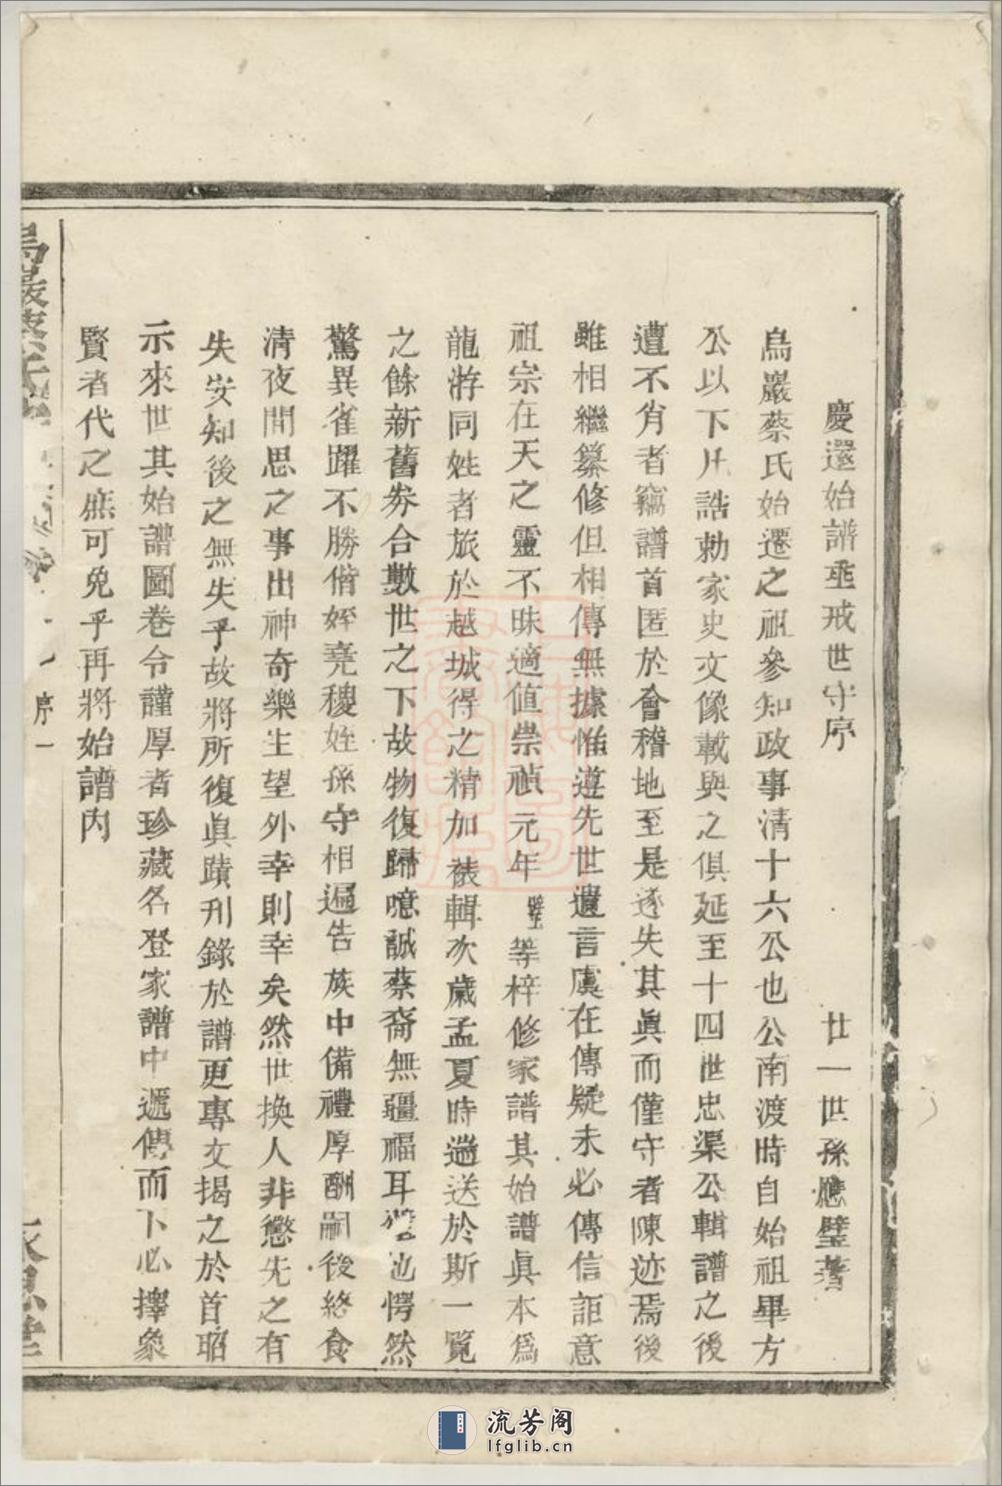 慶還始譜垂戒世守序　廿一世孫應璧著
烏巖蔡氏始遷之祖參知政事清十六公也公南渡時自始祖畢方
公以下凡誥勅家史文像載與之俱延至十四世忠渠公輯譜之後
遭不肖者竊譜首匿於會稽地至是遂失其眞而僅守者陳迹焉後
雖相繼纂修但相傳無據惟遵先世遺言虞在傳疑未必傳信詎意
祖宗在天之靈不昧適值崇禎元年璧等梓修家譜其始譜眞本爲
龍游同姓者旅於越城得之精加裱輯次歲孟夏時過送於斯一覽
之餘新舊券合數世之下故物復歸噫誠蔡裔無疆福耳璧也愕然
驚異雀躍不勝偕姪堯稷姪孫守相遍告族中備禮厚酬嗣後終食
清夜間思之事出神奇樂生望外幸則幸矣然世換人非懲先之有
失安知後之無失乎故將所復眞蹟刊錄於譜更專文揭之於首昭
示來世其始譜圖卷令謹厚者珍藏名登家譜中遞傳而下必擇象
賢者代之庶可免乎再將始譜內
烏巖蔡氏
序 一
永思堂
流芳阁
lfglib.cn